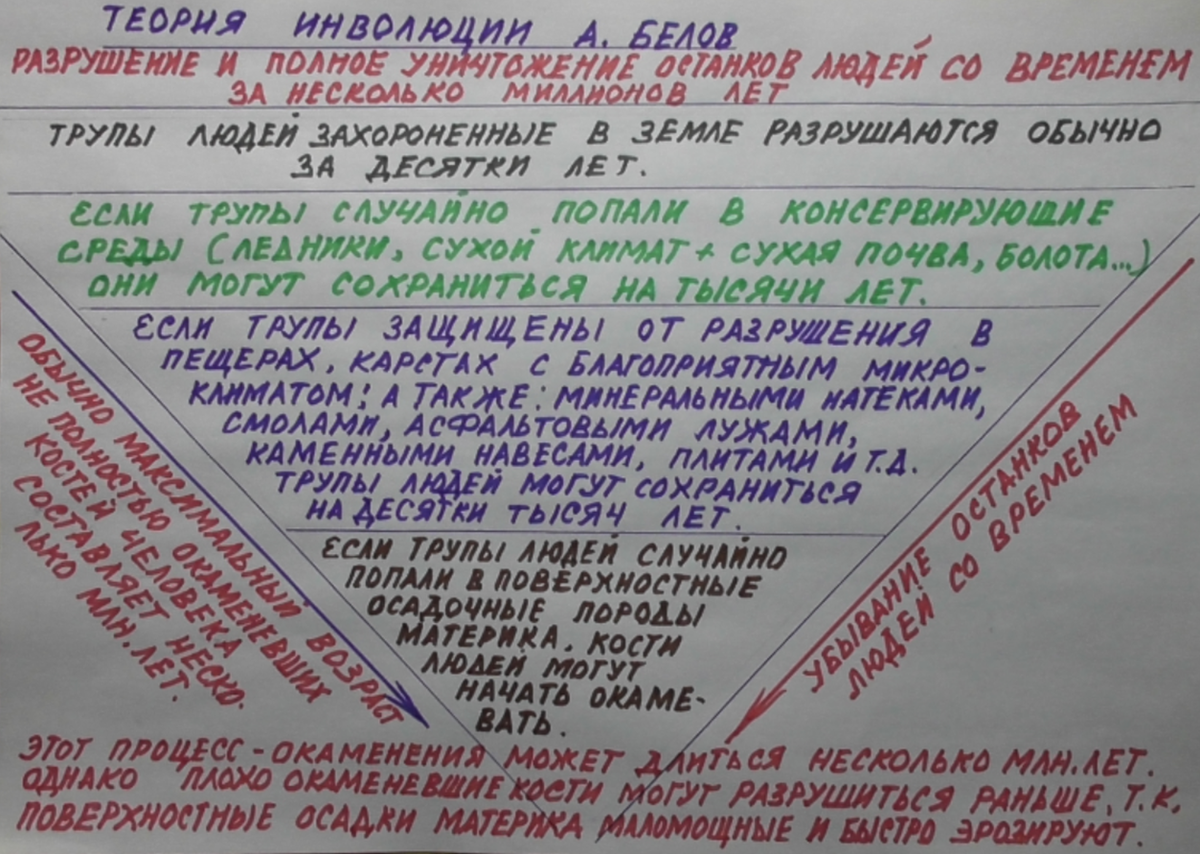 ТЕОРИЯ ИНВОЛЮЦИИ А. БЕЛОВ
РАЗРУШЕНИЕ И ПОЛНОЕ УНИЧТОЖЕНИЕ ОСТАНКОВ ЛЮДЕЙ СО ВРЕМЕНЕМ
ЗА НЕСКОЛЬКО МИЛЛИОНОВ ЛЕТ
ТРУПЫ ЛЮДЕЙ ЗАХОРОНЕННЫЕ В ЗЕМЛЕ РАЗРУШАЮТСЯ ОБЫЧНО
ЗА ДЕСЯТКИ ЛЕТ.
ЕСЛИ ТРУПЫ СЛУЧАЙНО ПОПАЛИ В КОНСЕРВИРУЮЩИЕ
СРЕДЫ (ЛЕДНИКИ, СУХОЙ КЛИМАТ + СУХАЯ ПОЧВА, БОЛОТА...)
ОНИ МОГУТ СОХРАНИТЬСЯ НА ТЫСЯЧИ ЛЕТ.
ЕСЛИ ТРУПЫ ЗАЩИЩЕНЫ ОТ РАЗРУШЕНИЯ В
ПЕЩЕРАХ, КАРСТАХ С БЛАГОПРИЯТНЫМ МИКРО-
КЛИМАТОМ; А ТАКЖЕ: МИНЕРАЛЬНЫМИ НАТЕКАМИ,
СМОЛАМИ, АСФАЛЬТОВЫМИ ЛУЖАМИ,
КАМЕННЫМИ НАВЕСАМИ, ПЛИТАМИ И Т.Д.
ТРУПЫ ЛЮДЕЙ МОГУТ СОХРАНИТЬСЯ
НА ДЕСЯТКИ ТЫСЯЧ ЛЕТ.
ЕСЛИ ТРУПЫ ЛЮДЕЙ СЛУЧАЙНО
ПОПАЛИ В ПОВЕРХНОСТНЫЕ
ОСАДОЧНЫЕ ПОРОДЫ
МАТЕРИКА, КОСТИ
ЛЮДЕЙ МОГУТ
НАЧАТЬ ОКАМЕ-
ВАТЬ.
ОБЫЧНО МАКСИМАЛЬНЫЙ ВОЗРАСТ
НЕ ПОЛНОСТЬЮ ОКАМЕНЕВШИХ
КОСТЕЙ ЧЕЛОВЕКА
СОСТАВЛЯЕТ НЕСКО-
ЛЬКО МЛН. ЛЕТ.
УБЫВАНИЕ ОСТАНКОВ
ЛЮДЕЙ СО ВРЕМЕНЕМ
ЭТОТ ПРОЦЕСС - ОКАМЕНЕНИЯ МОЖЕТ ДЛИТЬСЯ НЕСКОЛЬКО МЛН. ЛЕТ.
ОДНАКО ПЛОХО ОКАМЕНЕВШИЕ КОСТИ МОГУТ РАЗРУШИТЬСЯ РАНЬШЕ, Т.К.
ПОВЕРХНОСТНЫЕ ОСАДКИ МАТЕРИКА МАЛОМОЩНЫЕ И БЫСТРО ЭРОЗИРУЮТ.